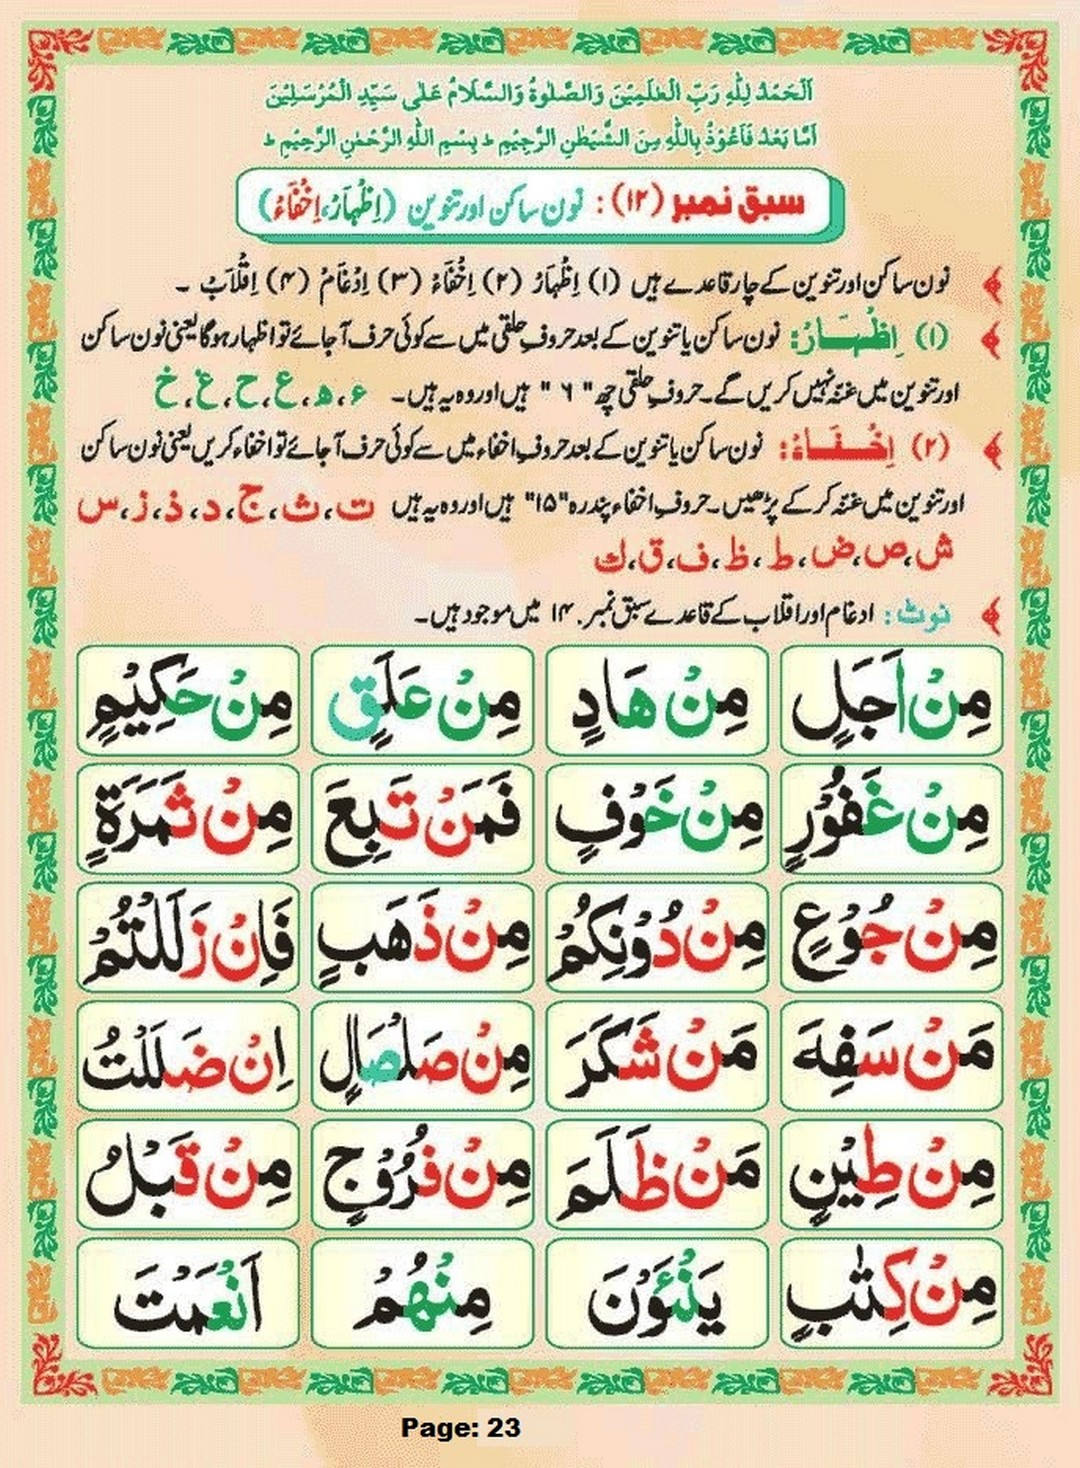 اَلْحَمْدُ لِلّٰهِ رَبِّ الْعٰلَمِيْنَ وَالصَّلٰوةُ وَالسَّلَامُ عَلٰى سَيِّدِ الْمُرْسَلِيْنَ
اَمَّا بَعْدُ فَاَعُوْذُ بِاللّٰهِ مِنَ الشَّيْطٰنِ الرَّجِيْمِ ط بِسْمِ اللّٰهِ الرَّحْمٰنِ الرَّحِيْمِ ط
سبق نمبر (۱۲) : نون ساکن اور تنوین (اِظْہَارْ، اِخْفَاءْ)
نون ساکن اور تنوین کے چار قاعدے ہیں (۱) اِظْہَارْ (۲) اِخْفَاءْ (۳) اِدْغَامْ (۴) اِقْلَابْ ۔
(۱) اِظْہَارْ: نون ساکن یا تنوین کے بعد حروفِ حلقی میں سے کوئی حرف آجائے تو اظہار ہوگا یعنی نون ساکن
اور تنوین میں غنّہ نہیں کریں گے۔ حروفِ حلقی چھ "۶" ہیں اور وہ یہ ہیں۔ ء، ہ، ع، ح، غ، خ
(۲) اِخْفَاءْ: نون ساکن یا تنوین کے بعد حروفِ اخفاء میں سے کوئی حرف آجائے تو اخفاء کریں یعنی نون ساکن
اور تنوین میں غنّہ کر کے پڑھیں۔ حروفِ اخفاء پندرہ "۱۵" ہیں اور وہ یہ ہیں ت، ث، ج، د، ذ، ز، س
ش، ص، ض، ط، ظ، ف، ق، ك
نوٹ: ادغام اور اقلاب کے قاعدے سبق نمبر ۱۴ میں موجود ہیں۔
مِنْ اَجَلٍ مِنْ هَادٍ مِنْ عَلَقٍ مِنْ حَكِيْمٍ
مِنْ غَفُوْرٍ مِنْ خَوْفٍ فَمَنْ تَبِعَ مِنْ ثَمَرَةٍ
مِنْ جُوْعٍ مِنْ دُوْنِكُمْ مِنْ ذَهَبٍ فَاِنْ زَلَلْتُمْ
مَنْ سَفِهَ مَنْ شَكَرَ مِنْ صَلْصَالٍ اِنْ ضَلَلْتُ
مِنْ طِيْنٍ مَنْ ظَلَمَ مِنْ فُرُوْجٍ مِنْ قَبْلُ
مِنْ كِتٰبٍ يَنْئَوْنَ مِنْهُمْ اَنْعَمْتَ
Page: 23